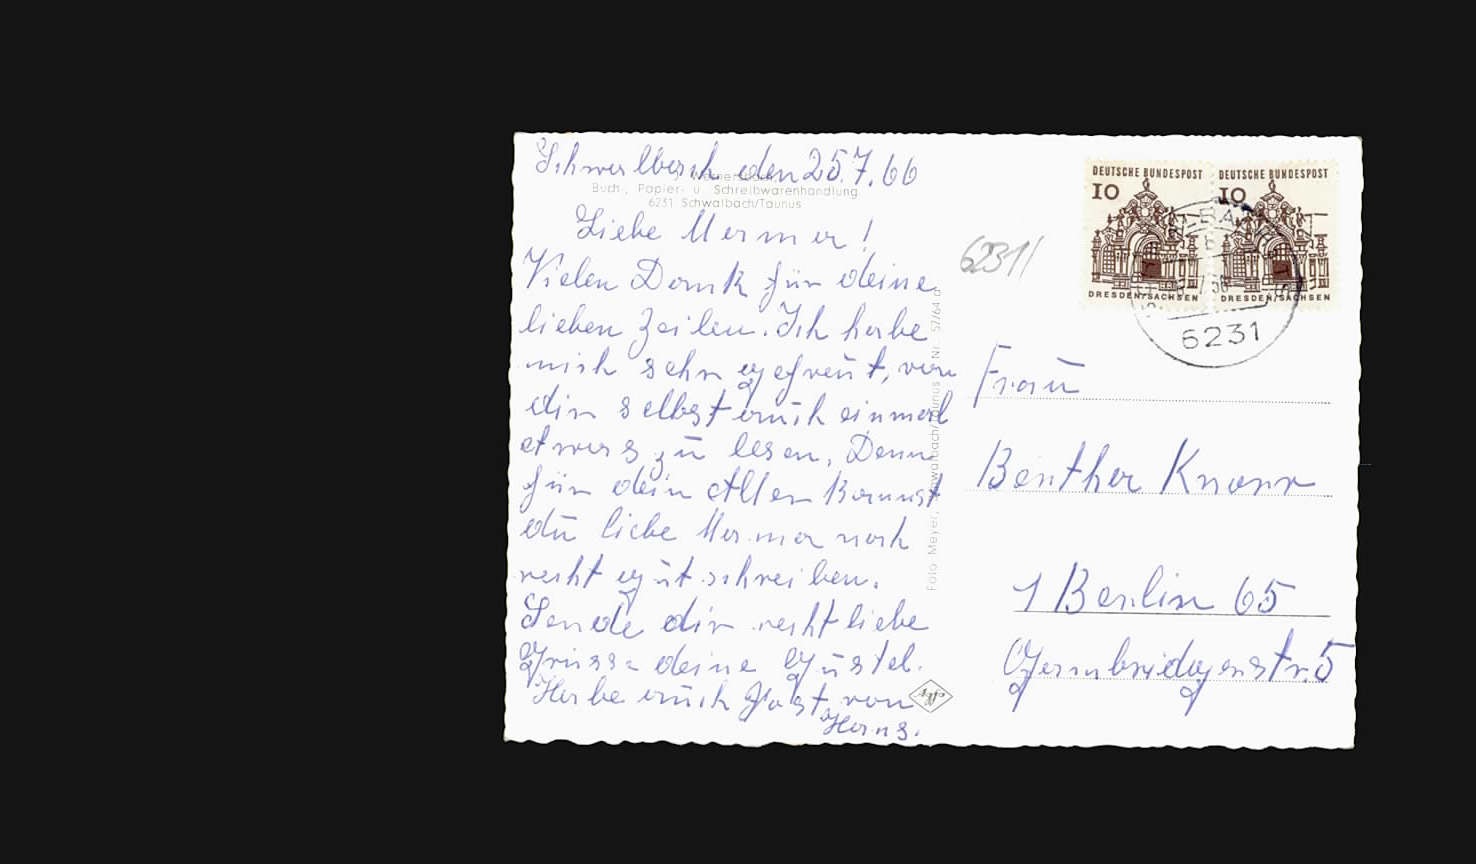 Schwalbach den 25.7.66
Wernersbach
Buch-, Papier- u. Schreibwarenhandlung
6231 Schwalbach/Taunus
Liebe Mama!
Vielen Dank für deine
lieben Zeilen. Ich habe
mich sehr gefreut, von
dir selbst auch einmal
etwas zu lesen, Denn
für dein Alter kannst
du liebe Mama noch
recht gut schreiben.
Sende dir recht liebe
Grüsse deine Gustel.
Habe auch Post von
Hans.
Foto Meyer, Schwalbach/Taunus Nr. 52/64 d
6231/
DEUTSCHE BUNDESPOST
10
DRESDEN/SACHSEN
DEUTSCHE BUNDESPOST
10
DRESDEN/SACHSEN
6231
Frau
Bertha Knorr
1 Berlin 65